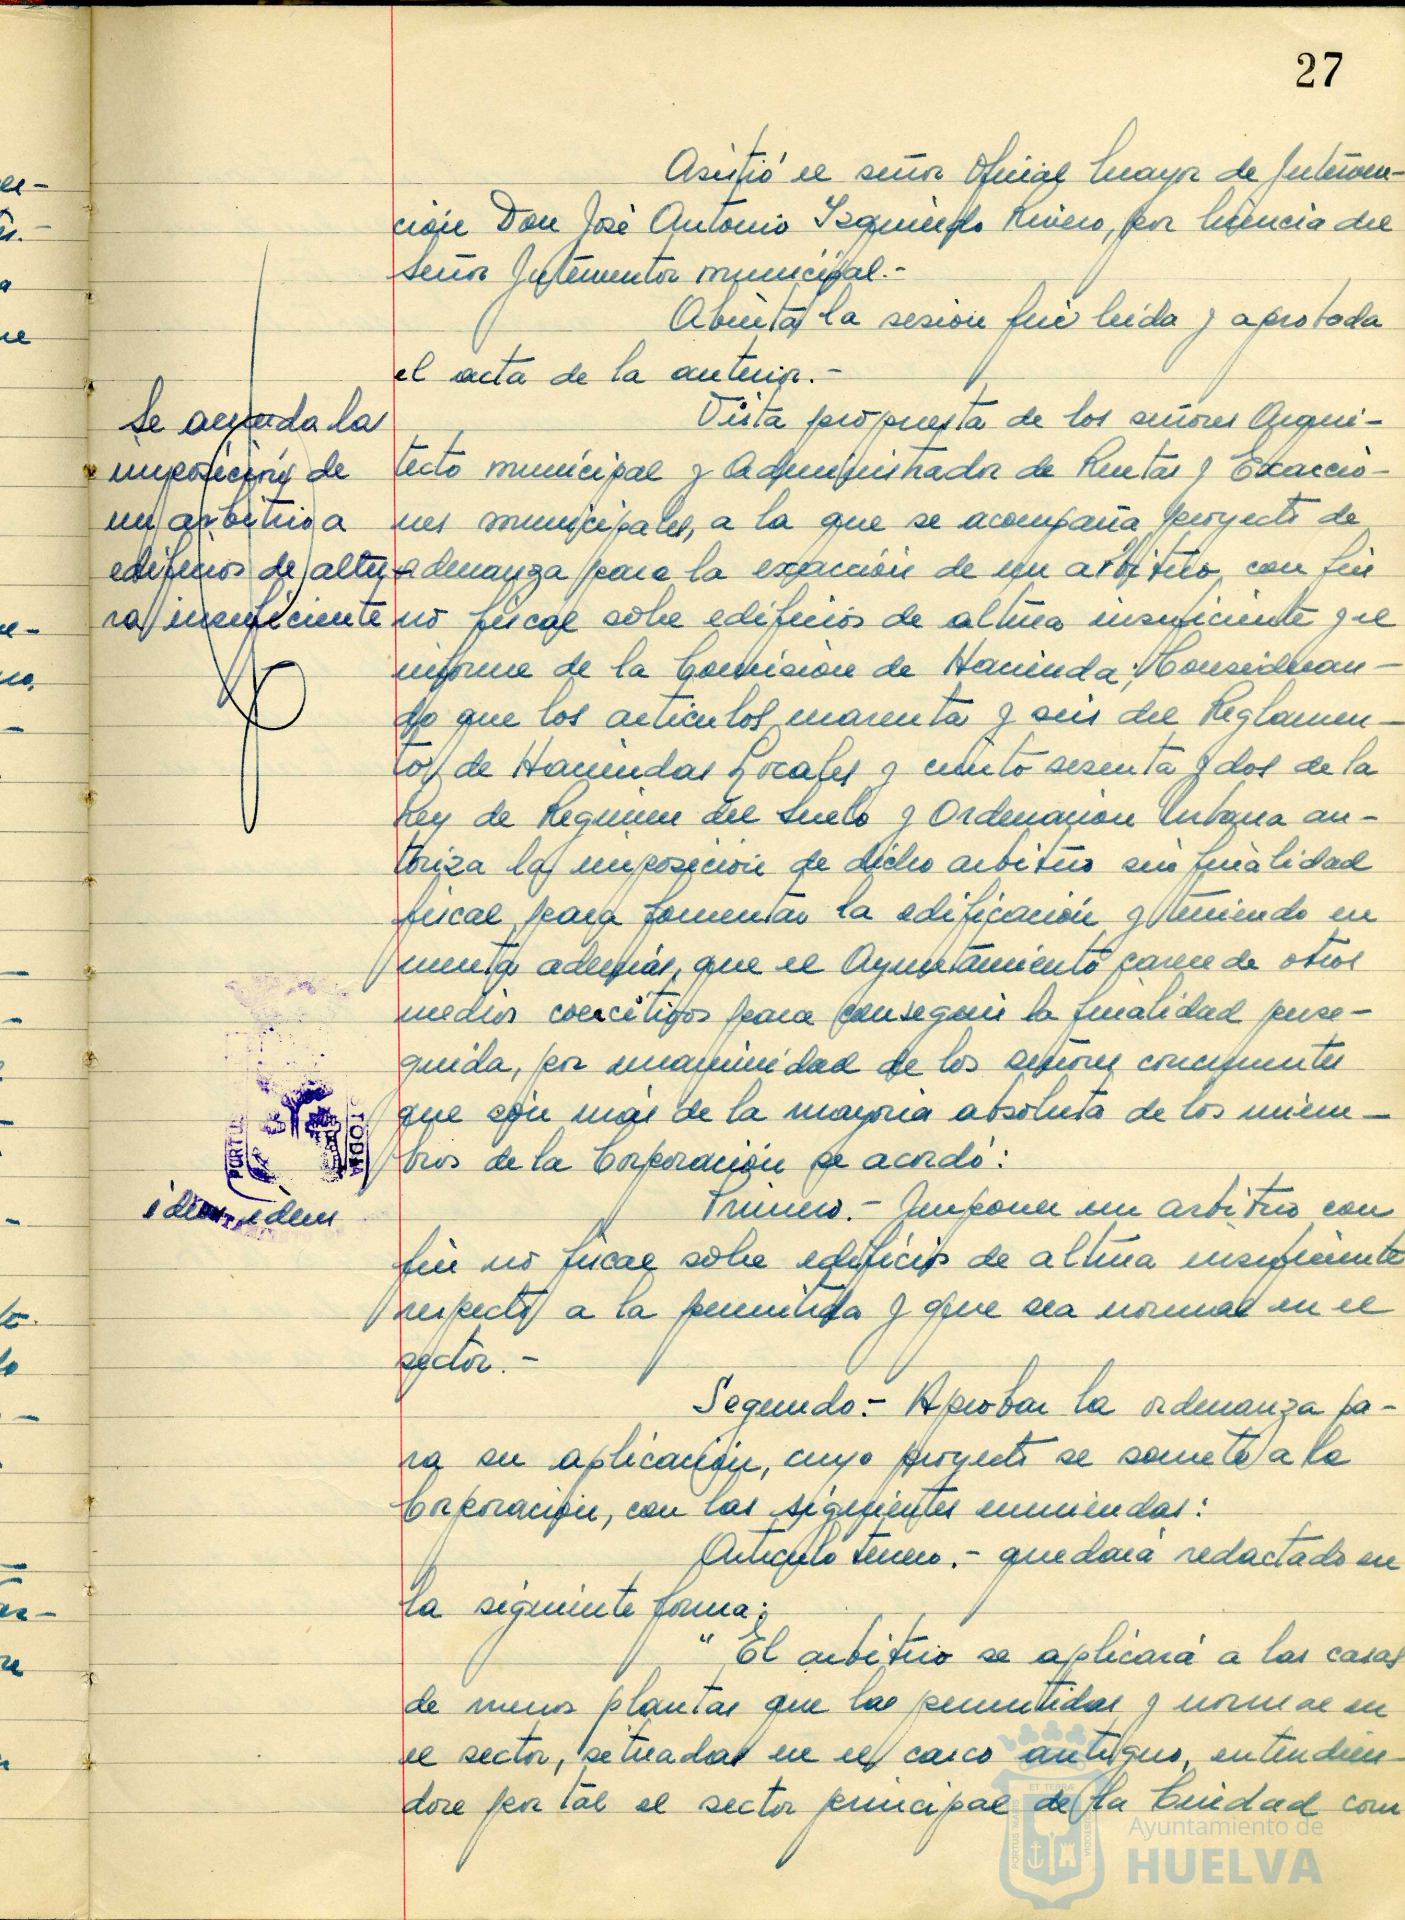 27
Asistió el señor Oficial Mayor de Interven-
ción Don José Antonio Izquierdo Rivero, por licencia del
señor Interventor municipal.-
Abierta la sesión fué leída y aprobada
el acta de la anterior.-
Se acuerda las
imposición de
un arbitrio a
edificios de altu-
ra insuficiente
Vista propuesta de los señores Arqui-
tecto municipal y Administrador de Rentas y Exaccio-
nes municipales, a la que se acompaña proyecto de
ordenanza para la exacción de un arbitrio con fin
no fiscal sobre edificios de altura insuficiente y el
informe de la Comisión de Hacienda; Consideran-
do que los artículos cuarenta y seis del Reglamen-
to de Haciendas Locales y ciento sesenta y dos de la
Ley de Regimen del Suelo y Ordenación Urbana au-
toriza la imposición de dicho arbitrio sin finalidad
fiscal, para fomentar la edificación y teniendo en
cuenta además, que el Ayuntamiento carece de otros
medios coercitivos para conseguir la finalidad perse-
guida, por unanimidad de los señores concurrentes
que son más de la mayoria absoluta de los miem-
bros de la Corporación se acordó:
idem idem
Primero.- Imponer un arbitrio con
fin no fiscal sobre edificios de altura insuficiente
respecto a la permitida y que sea normal en el
sector.-
Segundo.- Aprobar la ordenanza pa-
ra su aplicación, cuyo proyecto se somete a la
Corporación, con las siguientes enmiendas:
Artículo tercero.- quedará redactado en
la siguiente forma:
"El arbitrio se aplicará a las casas
de menos plantas que las permitidas y normal en
el sector, situadas en el casco antiguo, entendien-
dose por tal el sector principal de la Ciudad com
PORTUS
CUSTODIA
Ayuntamiento de
HUELVA